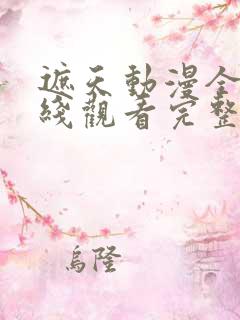 遮天動漫全
綫觀看完整
烏隆